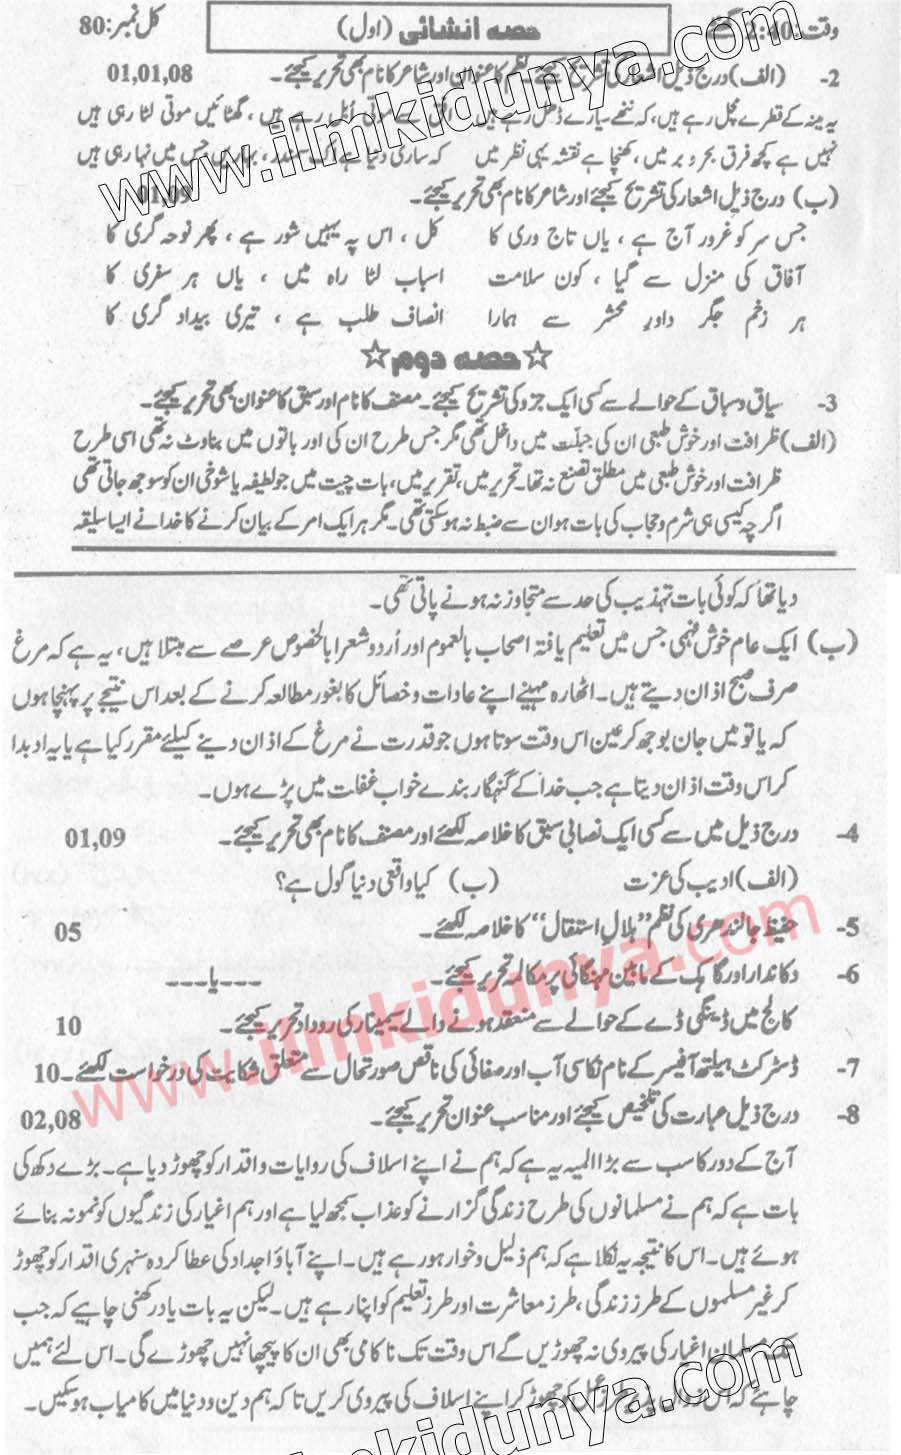 وقت: 2:40 گھنٹے
حصہ انشائی (اول)
کل نمبر: 80
2- (الف) درج ذیل اشعار کی تشریح کیجئے نظم کا عنوان اور شاعر کا نام بھی تحریر کیجئے۔ 01,01,08
یہ مینہ کے قطرے مچل رہے ہیں، کہ ننھے سیارے ڈھل رہے ہیں افق سے موتی اُبل رہے ہیں، گھٹائیں موتی لٹا رہی ہیں
نہیں ہے کچھ فرق بحر و بر میں، کھنچا ہے نقشہ یہی نظر میں کہ ساری دنیا ہے اک سمندر، بہاریں جس میں نہا رہی ہیں
(ب) درج ذیل اشعار کی تشریح کیجئے اور شاعر کا نام بھی تحریر کیجئے۔ 01,09
جس سر کو غرور آج ہے ، یاں تاج وری کا کل ، اس پہ یہیں شور ہے ، پھر نوحہ گری کا
آفاق کی منزل سے گیا ، کون سلامت اسباب لٹا راہ میں ، یاں ہر سفری کا
ہر زخم جگر داور محشر سے ہمارا انصاف طلب ہے ، تیری بیداد گری کا
☆حصہ دوم☆
3- سیاق و سباق کے حوالے سے کسی ایک جزو کی تشریح کیجئے۔ مصنف کا نام اور سبق کا عنوان بھی تحریر کیجئے۔
(الف) ظرافت اور خوش طبعی ان کی جبلّت میں داخل تھی مگر جس طرح ان کی اور باتوں میں بناوٹ نہ تھی اسی طرح
ظرافت اور خوش طبعی میں مطلق تصنع نہ تھا۔ تحریر میں، تقریر میں، بات چیت میں جو لطیفہ یا شوخی ان کو سوجھ جاتی تھی
اگرچہ کیسی ہی شرم و حجاب کی بات ہو ان سے ضبط نہ ہو سکتی تھی۔ مگر ہر ایک امر کے بیان کرنے کا خدا نے ایسا سلیقہ
دیا تھا کہ کوئی بات تہذیب کی حد سے متجاوز نہ ہونے پاتی تھی۔
(ب) ایک عام خوش فہمی جس میں تعلیم یافتہ اصحاب بالعموم اور اُردو شعرا بالخصوص عرصے سے مبتلا ہیں، یہ ہے کہ مرغ
صرف صبح اذان دیتے ہیں۔ اٹھارہ مہینے اپنے عادات و خصائل کا بغور مطالعہ کرنے کے بعد اس نتیجے پر پہنچا ہوں
کہ یا تو میں جان بوجھ کر عین اس وقت سوتا ہوں جو قدرت نے مرغ کے اذان دینے کیلئے مقرر کیا ہے یا یہ ادبدا
کر اس وقت اذان دیتا ہے جب خدا کے گنہگار بندے خواب غفلت میں پڑے ہوں۔
4- درج ذیل میں سے کسی ایک نصابی سبق کا خلاصہ لکھئے اور مصنف کا نام بھی تحریر کیجئے۔ 01,09
(الف) ادیب کی عزت (ب) کیا واقعی دنیا گول ہے؟
5- حفیظ جالندھری کی نظم "ہلالِ استقلال" کا خلاصہ لکھئے۔ 05
6- دکاندار اور گاہک کے مابین مہنگائی پر مکالمہ تحریر کیجئے۔ ---یا---
کالج میں ڈینگی ڈے کے حوالے سے منعقد ہونے والے سیمینار کی روداد تحریر کیجئے۔ 10
7- ڈسٹرکٹ ہیلتھ آفیسر کے نام نکاسی آب اور صفائی کی ناقص صورتحال سے متعلق شکایت کی درخواست لکھئے۔ 10
8- درج ذیل عبارت کی تلخیص کیجئے اور مناسب عنوان تحریر کیجئے۔ 02,08
آج کے دور کا سب سے بڑا المیہ یہ ہے کہ ہم نے اپنے اسلاف کی روایات و اقدار کو چھوڑ دیا ہے۔ بڑے دکھ کی
بات ہے کہ ہم نے مسلمانوں کی طرح زندگی گزارنے کو عذاب سمجھ لیا ہے اور ہم اغیار کی زندگیوں کو نمونہ بنائے
ہوئے ہیں۔ اس کا نتیجہ یہ نکلا ہے کہ ہم ذلیل و خوار ہو رہے ہیں۔ اپنے آباؤ اجداد کی عطا کردہ سنہری اقدار کو چھوڑ
کر غیر مسلموں کے طرز زندگی، طرز معاشرت اور طرز تعلیم کو اپنا رہے ہیں۔ لیکن یہ بات یاد رکھنی چاہیے کہ جب
تک مسلمان اغیار کی پیروی نہ چھوڑیں گے اس وقت تک ناکامی بھی ان کا پیچھا نہیں چھوڑے گی۔ اس لئے ہمیں
چاہئے کہ اس زوال پذیر طرز عمل کو چھوڑ کر اپنے اسلاف کی پیروی کریں تاکہ ہم دین و دنیا میں کامیاب ہو سکیں۔
www.ilmkidunya.com
www.ilmkidunya.com
www.ilmkidunya.com